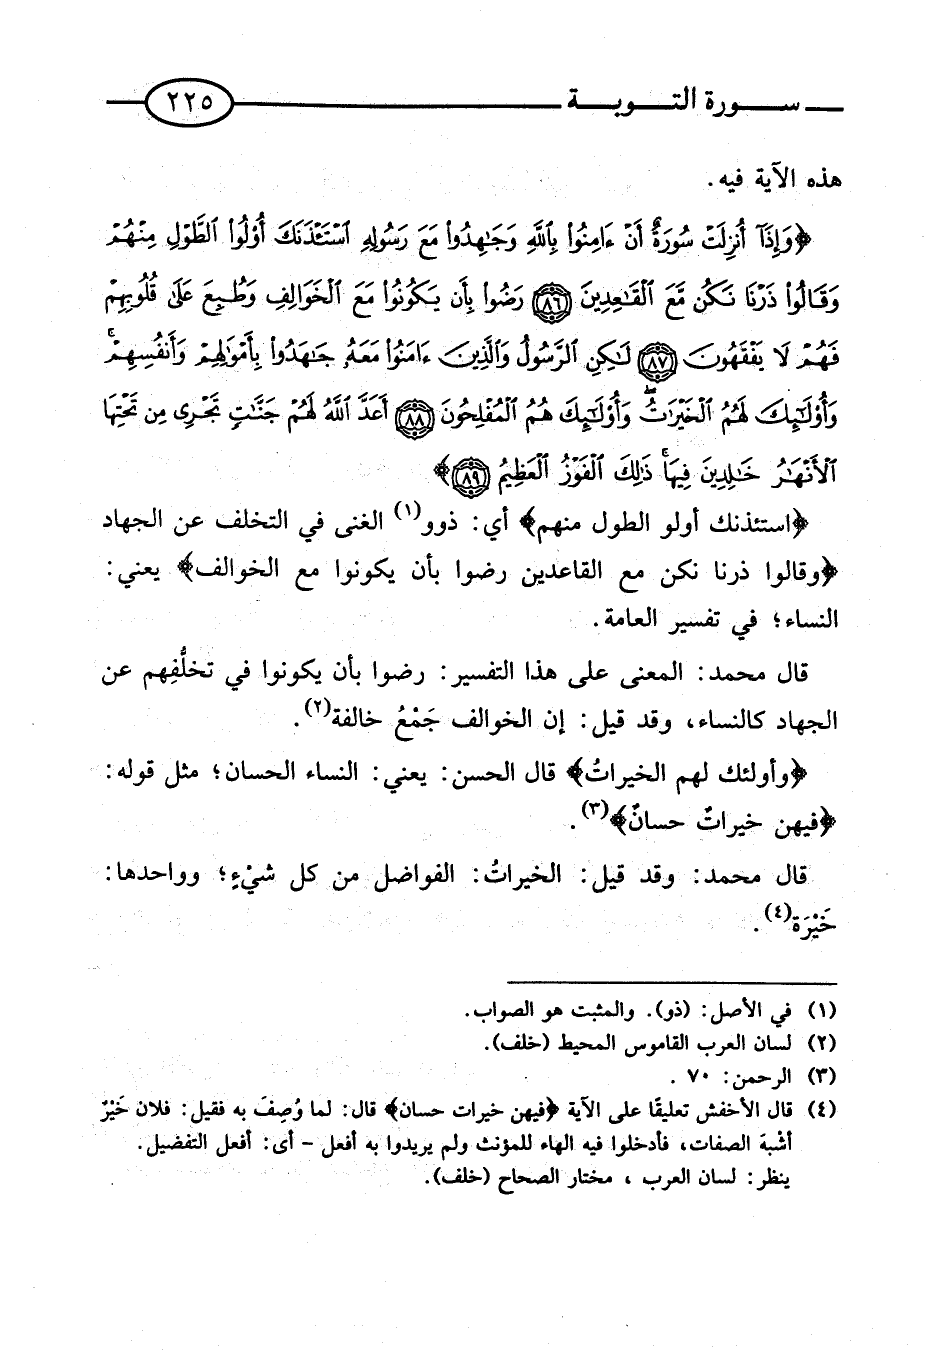 سورة التوبة ٢٢٥
هذه الآية فيه.
﴿وَإِذَآ أُنزِلَتْ سُورَةٌ أَنْ ءَامِنُوا۟ بِٱللَّهِ وَجَٰهِدُوا۟ مَعَ رَسُولِهِ ٱسْتَـْٔذَنَكَ أُو۟لُوا۟ ٱلطَّوْلِ مِنْهُمْ
وَقَالُوا۟ ذَرْنَا نَكُن مَّعَ ٱلْقَٰعِدِينَ ٨٦ رَضُوا۟ بِأَن يَكُونُوا۟ مَعَ ٱلْخَوَالِفِ وَطُبِعَ عَلَىٰ قُلُوبِهِمْ
فَهُمْ لَا يَفْقَهُونَ ٨٧ لَٰكِنِ ٱلرَّسُولُ وَٱلَّذِينَ ءَامَنُوا۟ مَعَهُۥ جَٰهَدُوا۟ بِأَمْوَٰلِهِمْ وَأَنفُسِهِمْ ۚ
وَأُو۟لَٰٓئِكَ لَهُمُ ٱلْخَيْرَٰتُ ۖ وَأُو۟لَٰٓئِكَ هُمُ ٱلْمُفْلِحُونَ ٨٨ أَعَدَّ ٱللَّهُ لَهُمْ جَنَّٰتٍ تَجْرِى مِن تَحْتِهَا
ٱلْأَنْهَٰرُ خَٰلِدِينَ فِيهَا ۚ ذَٰلِكَ ٱلْفَوْزُ ٱلْعَظِيمُ ٨٩﴾
﴿استئذنك أولو الطول منهم﴾ أي: ذوو(١) الغنى في التخلف عن الجهاد
﴿وقالوا ذرنا نكن مع القاعدين رضوا بأن يكونوا مع الخوالف﴾ يعني:
النساء؛ في تفسير العامة.
قال محمد: المعنى على هذا التفسير: رضوا بأن يكونوا في تخلُّفِهم عن
الجهاد كالنساء، وقد قيل: إن الخوالف جَمْعُ خالفة(٢).
﴿وأولئك لهم الخيراتُ﴾ قال الحسن: يعني: النساء الحسان؛ مثل قوله:
﴿فيهن خيراتٌ حسانٌ﴾(٣).
قال محمد: وقد قيل: الخيراتُ: الفواضل من كل شيْءٍ؛ وواحدها:
خَيْرَة(٤).
(١) في الأصل: (ذو). والمثبت هو الصواب.
(٢) لسان العرب القاموس المحيط (خلف).
(٣) الرحمن: ٧٠ .
(٤) قال الأخفش تعليقًا على الآية ﴿فيهن خيرات حسان﴾ قال: لما وُصِفَ به فقيل: فلان خَيْرٌ
أشْبهَ الصفات، فأدخلوا فيه الهاء للمؤنث ولم يريدوا به أفعل - أى: أفعل التفضيل.
ينظر: لسان العرب ، مختار الصحاح (خلف).